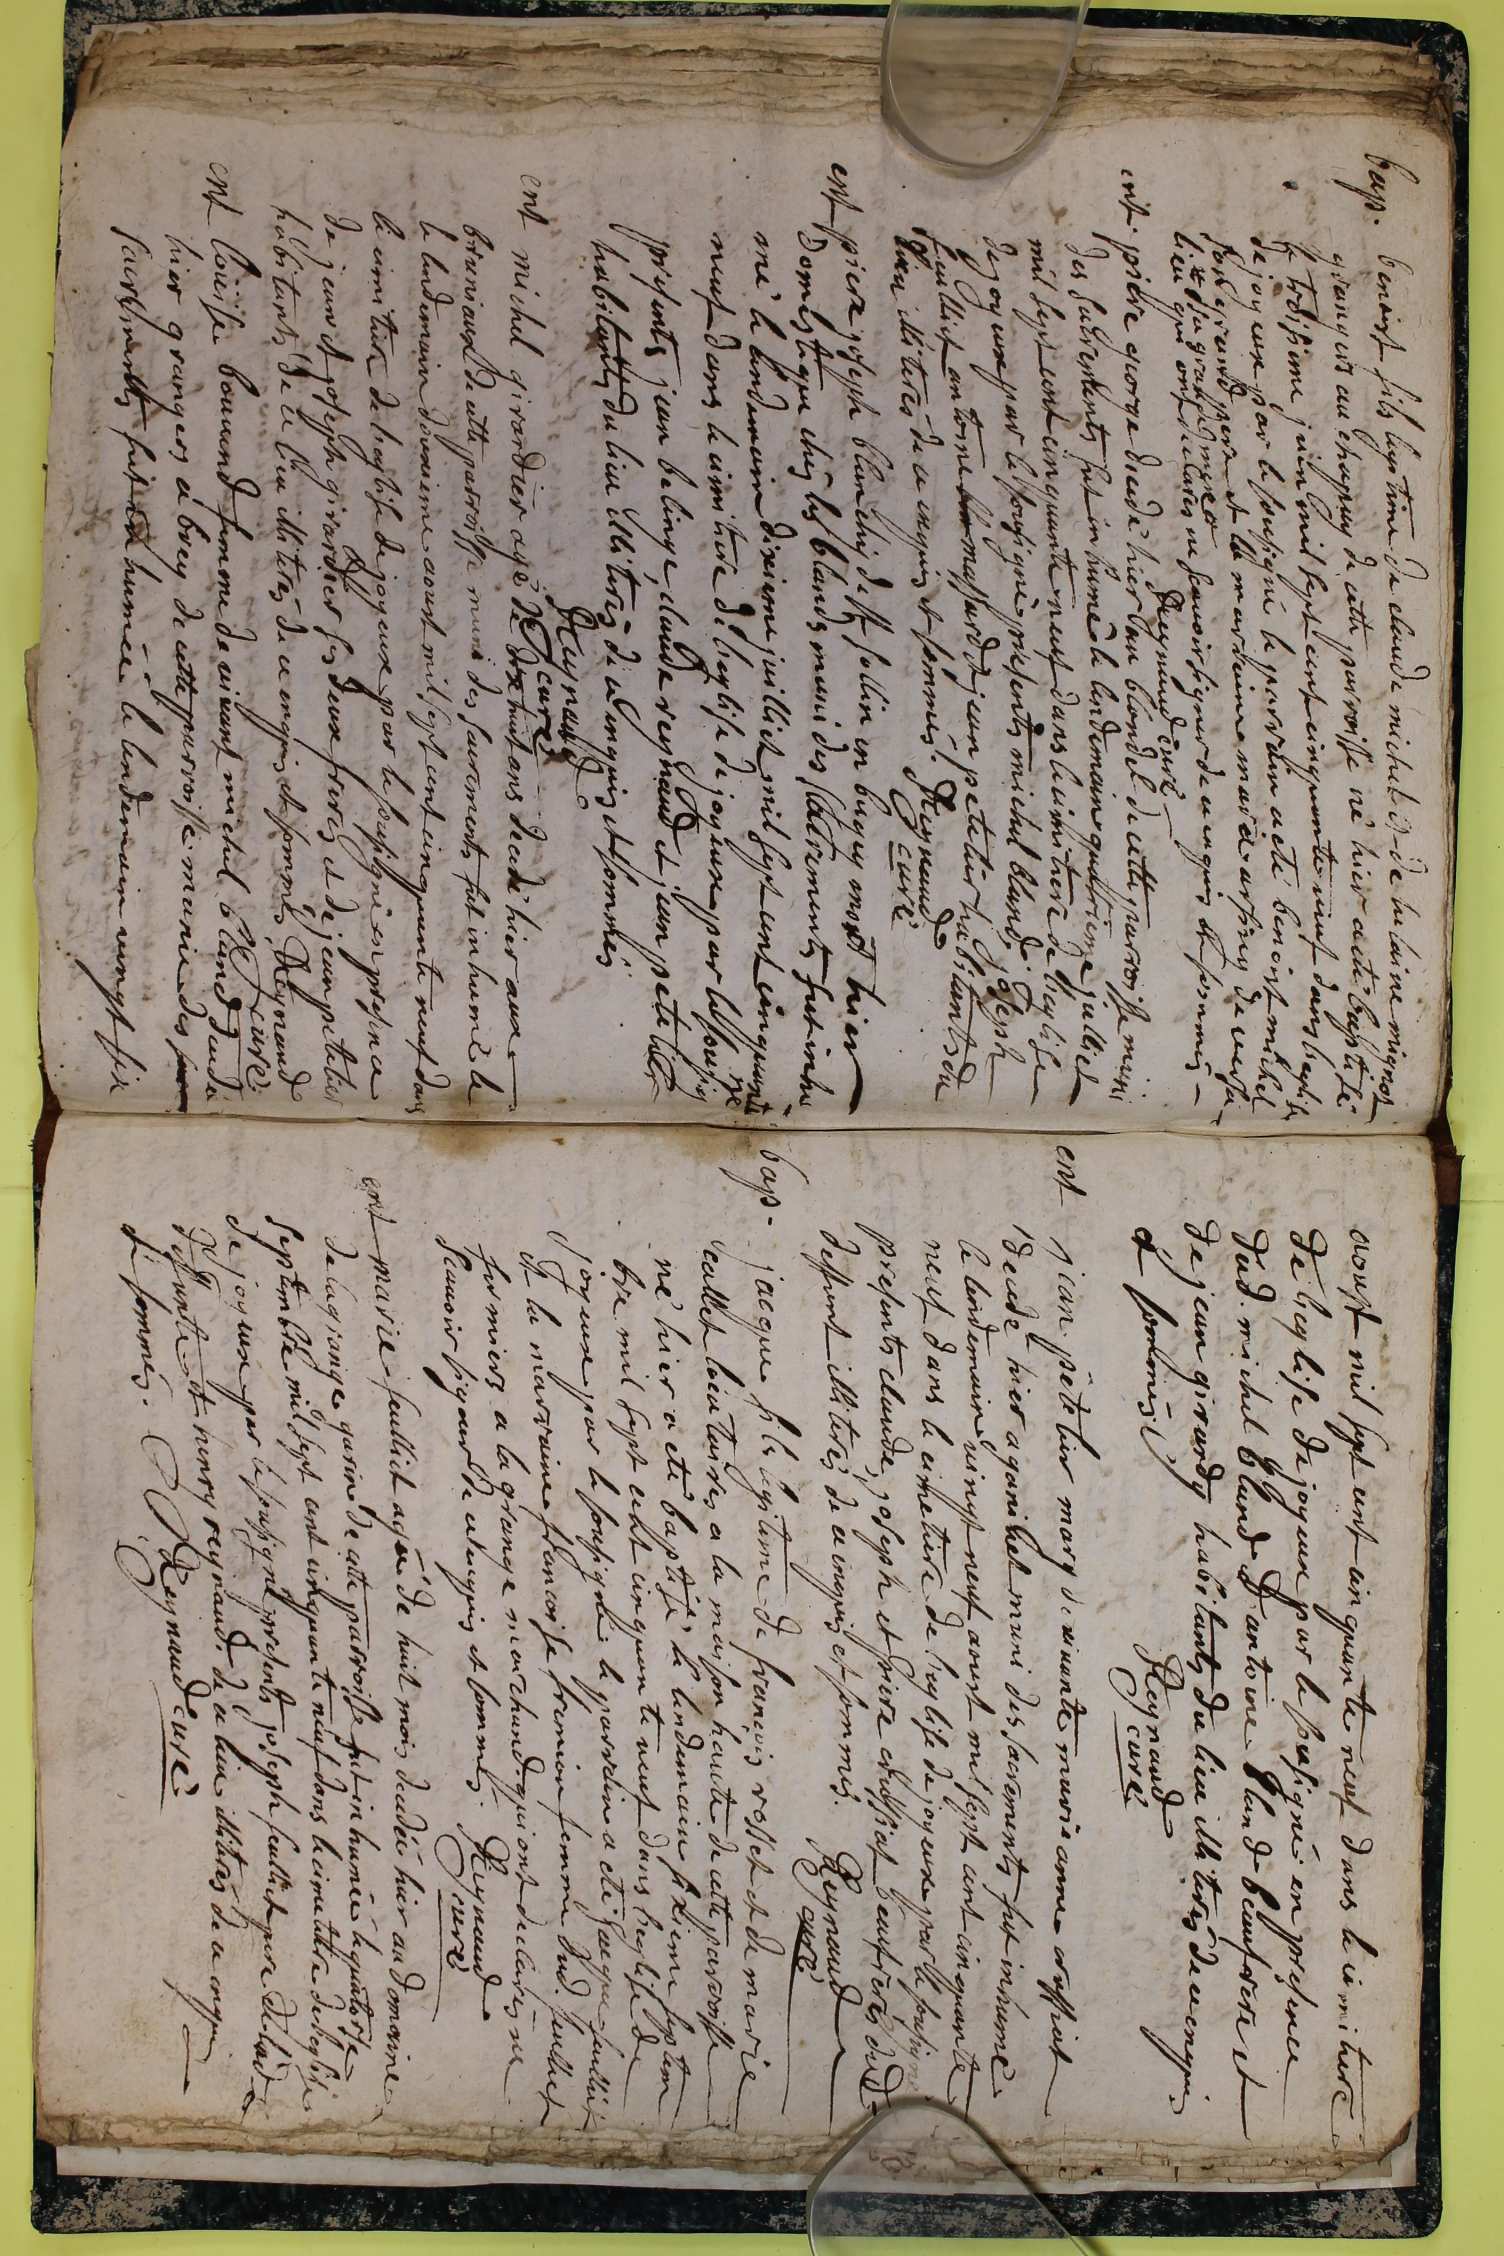 bap. benoist fils legitime de claude michel et de helaine mignot
grangers au chapuy de cette parroisse né hier a eté baptisé
le troisieme juin mil sept cent cinquante neuf dans leglise
de joyeux par le sousigné le parrain a eté benoist michel
son grand pere et la marraine marie
lieu qui ont declarés ne scavoir signer de ce enquis et sommés
Reynaud curé
ent. pierre george decedé hier au blondel de cette parroisse muni
des sacrements fut inhumé le lendemain quatrieme julliet
mil sept cent cinquante neuf dans le cimitiere de leglise
de joyeux par le sousigné presents michel bland, joseph
feulliet antoine massard et jean petetier habitants du
lieu illiterés de ce enquis et sommés. Reynaud
curé
ent pierre joseph blanchy de st sollin en bugey mort hier
domestique chés les blands muni des sacrements fut inhu
mé le lendemain dixieme juilliet mil sept cent cinquante
neuf dans le cimitiere de leglise de joyeux par le sousig
né
presents jean belinge, claude reynaud et jean petetier
habitants du lieu illiterés de ce enquis et sommés
Reynaud
curé
ent michel girardier agé de huit ans decedé hier aux
bruniaux de cette parroisse muni des sacrements fut inhumé le
le lendemain douzieme aoust mil sept cent cinquante neuf dans
le cimitiere de leglise de joyeux par le sousigné en presence
de jean et joseph girardier ses deux freres et de jean petetier
habitants de ce lieu illiterés de ce enquis et sommés Reynaud
curé
ent loüise bouvand femme de vivant michel bland decedée
hier grangers a boey de cette parroisse munie des
sacrements fut inhumée le lendemain vingt six
aoust mil sept cent cinquante neuf dans le cimitiere
de leglise de joyeux par le sousigné en presence
dud. michel bland d'antoine bland beaufrere et
de jean girardy habitants du lieu illiterés de ce enquis
et sommés
Reynaud
curé
ent jean petetier mary de vivante marie anne
decedé hier a muni des sacrements fut inhumé
le lendemain vingt neuf aoust mil sept cent cinquante
neuf dans le cimetiere de leglise de joyeux par le sousigné
presents claude, joseph et pierre beaufreres dud.
deffunt illiterés de ce enquis et sommés.
Reynaud
curé
bap. jacque fils legitime de françois rosset et de marie
locataires a la maison haute de cette parroisse
né hier a eté baptisé le lendemain sixieme septem
bre mil sept cent cinquante neuf dans leglise de
joyeux par le sousigné le parrain a eté jacque feulliet
et la marraine francoise fremion femme dud. feulliet
fermiers a la grange marchand qui ont declarés ne
scavoir signer de ce enquis et sommés. Reynaud
curé
ent marie feulliet agée de huit mois decedée hier au domaine
de la grange de cette parroisse fut inhumée le quatorze
septembre mil sept cent cinquante neuf dans le cimetiere de leglise
de joyeux par le sousigné presents joseph feulliet pere de lad
deffunte et henry reynaud de ce lieu illiterés de ce enquis
et sommés. Reynaud curé